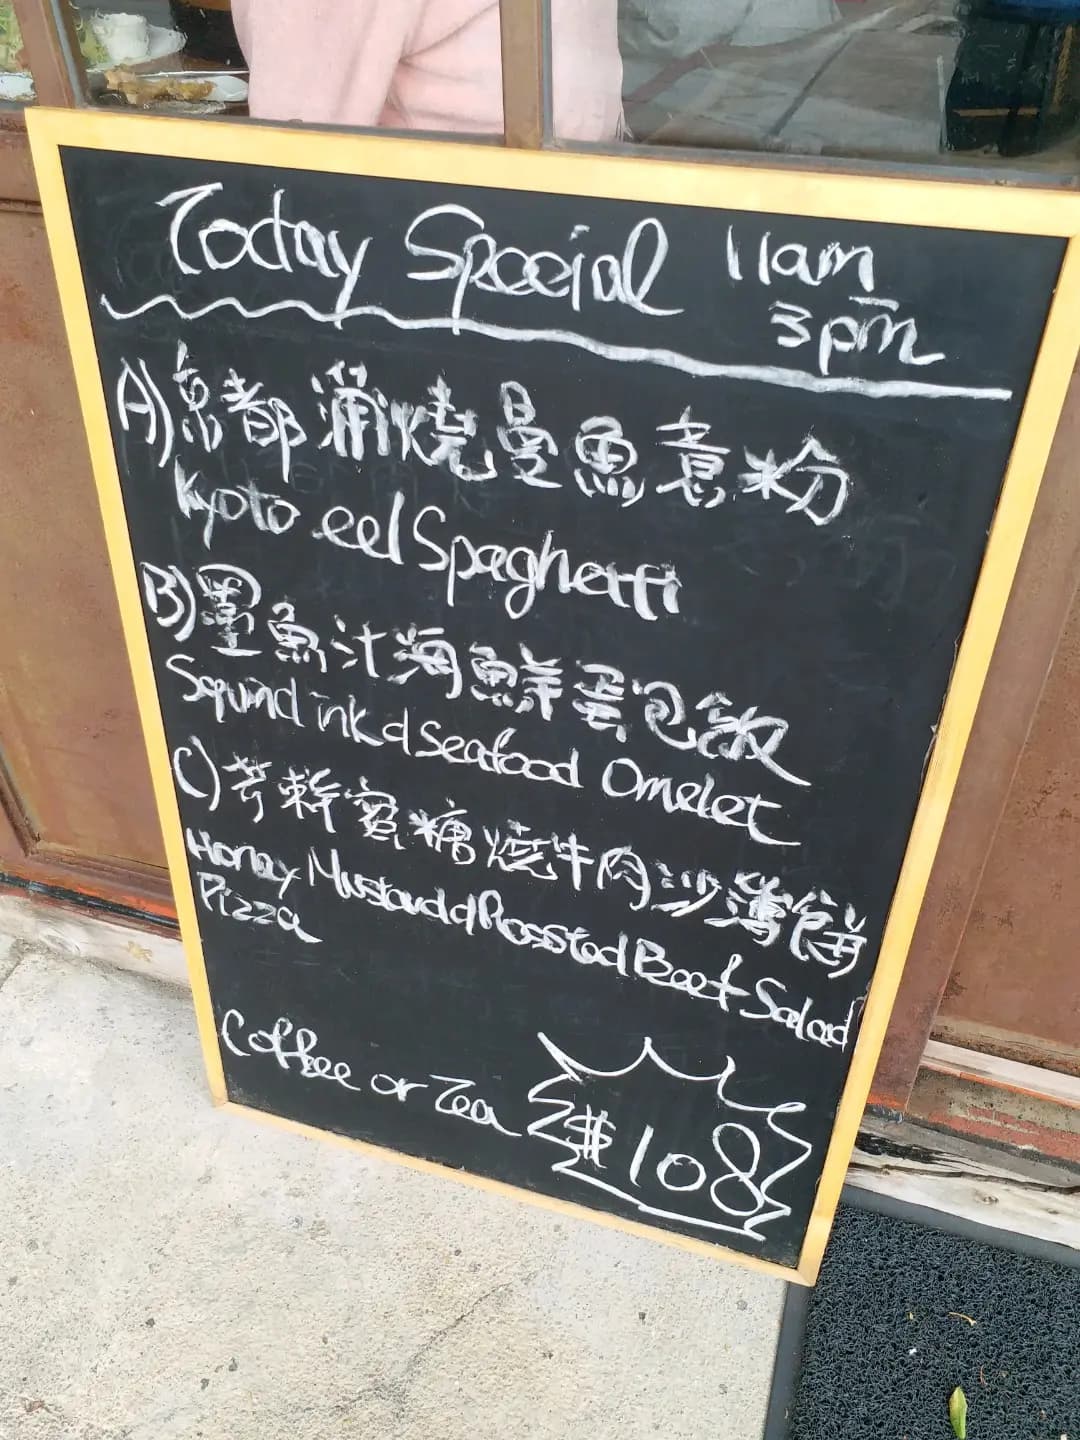 Today Special 11am
- 3pm
A) 京都蒲燒曼魚意粉
Kyoto eel Spaghetti
B) 墨魚汁海鮮蛋包飯
Squind ink d Seafood Omelet
C) 芥辣蜜糖燒牛肉沙薄餅
Honey Mustard d Rossted Beef Salad
Pizza
Coffee or Tea $108